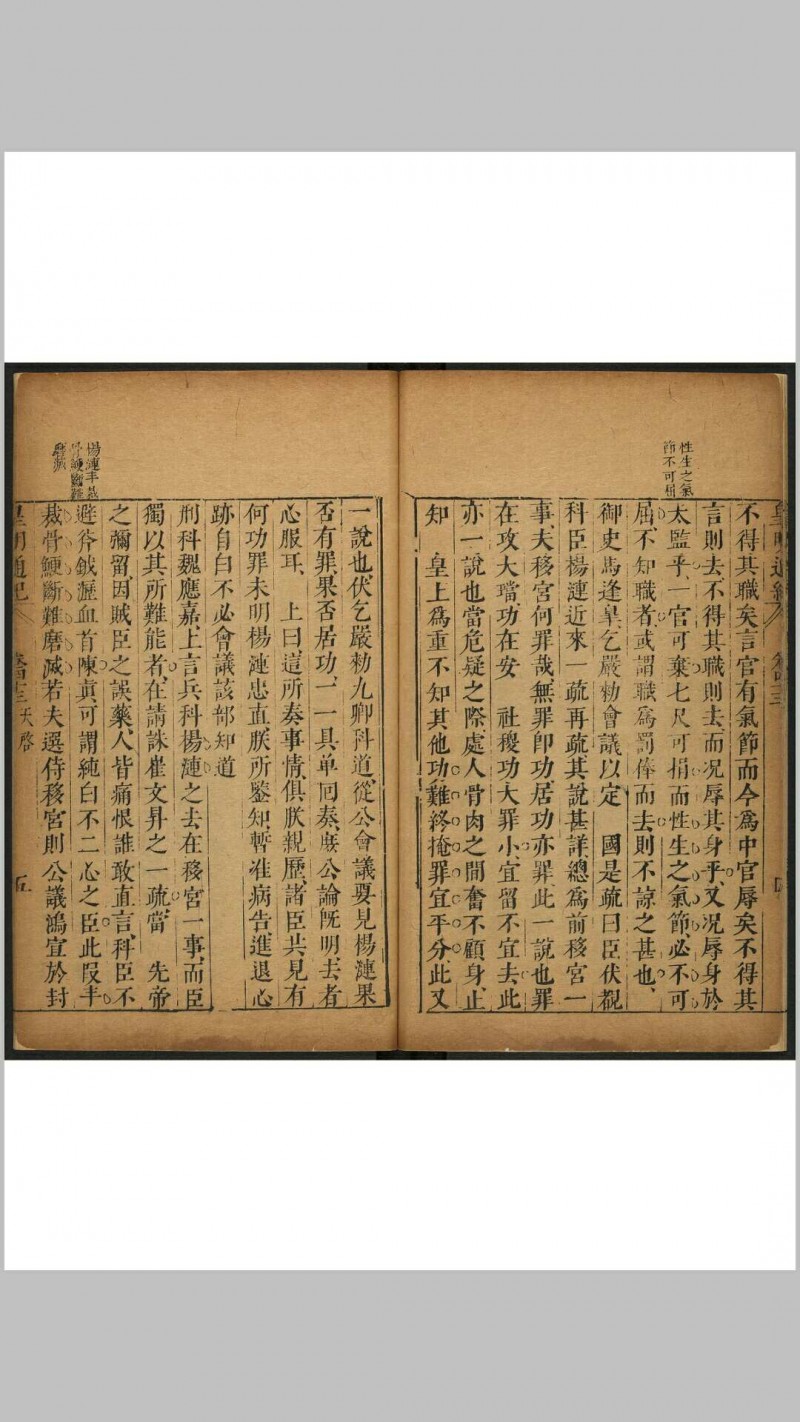 性生之氣
節不可屈
不得其職矣言官有氣節而今為中官辱矣不得其
言則去不得其職則去而况辱其身乎又况辱身於
太監乎一官可棄七尺可捐而性生之氣節必不可
屈不知職者或謂職為罰俸而去則不諒之甚也
御史馬逢皐乞嚴勑會議以定 國是疏曰臣伏覩
科臣楊漣近來一疏再疏其說甚詳總為前移宮一
事夫移宮何罪哉無罪卽功居功亦罪此一說也罪
在攻大璫功在安 社稷功大罪小宜留不宜去此
亦一說也當危疑之際處人骨肉之間奮不顧身止
知 皇上為重不知其他功難終掩罪宜平分此又
一說也伏乞嚴勑九卿科道從公會議要見楊漣果
否有罪果否居功一一具单囘奏庶公論旣明去者
心服耳 上曰這所奏事情俱朕親歷諸臣共見有
何功罪未明楊漣忠直朕所鑒知暫准病告進退心
跡自白不必會議該部知道
刑科魏應嘉上言兵科楊漣之去在移宮一事而臣
獨以其所難能者在請誅崔文昇之一疏當 先帝
之彌留因賊臣之誤藥人皆痛恨誰敢直言科臣不
避斧鉞瀝血首陳真可謂純白不二心之臣此叚丰
裁骨鯁斷難磨滅若夫選侍移宮則公議鴻宣於封
楊漣丰裁
骨鯁斷難
磨滅
皇明通紀 天啓 五